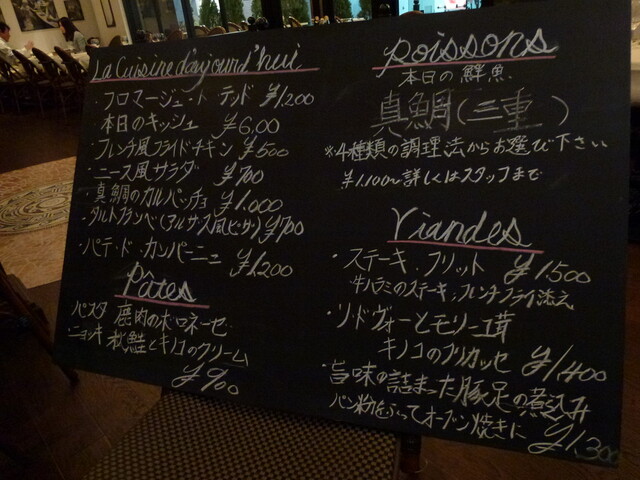 La Cuisine d'aujourd'hui
・フロマージュ・ト テッド ¥1,200
本日のキッシュ ¥6,00
・フレンチ風フライドチキン ¥500
・ニース風サラダ ¥700
・真鯛のカルパッチョ ¥1,000
・タルトフランベ(アルザス風ピザ) ¥700
・パテ・ド・カンパーニュ ¥1,200
Pâtes
パスタ 鹿肉のボロネーゼ
・ニョッキ 秋鮭とキノコのクリーム
¥900
Poissons
本日の鮮魚
真鯛(三重)
※4種類の調理法からお選び下さい
¥1,100〜詳しくはスタッフまで
Viandes
・ステーキ・フリット ¥1,500
牛ハラミのステーキ、フレンチフライ添え
・リ・ド・ヴォーとモリーユ茸
キノコのフリカッセ ¥1,400
・旨味の詰まった豚足の煮込み
パン粉をふってオーブン焼きに ¥1,300